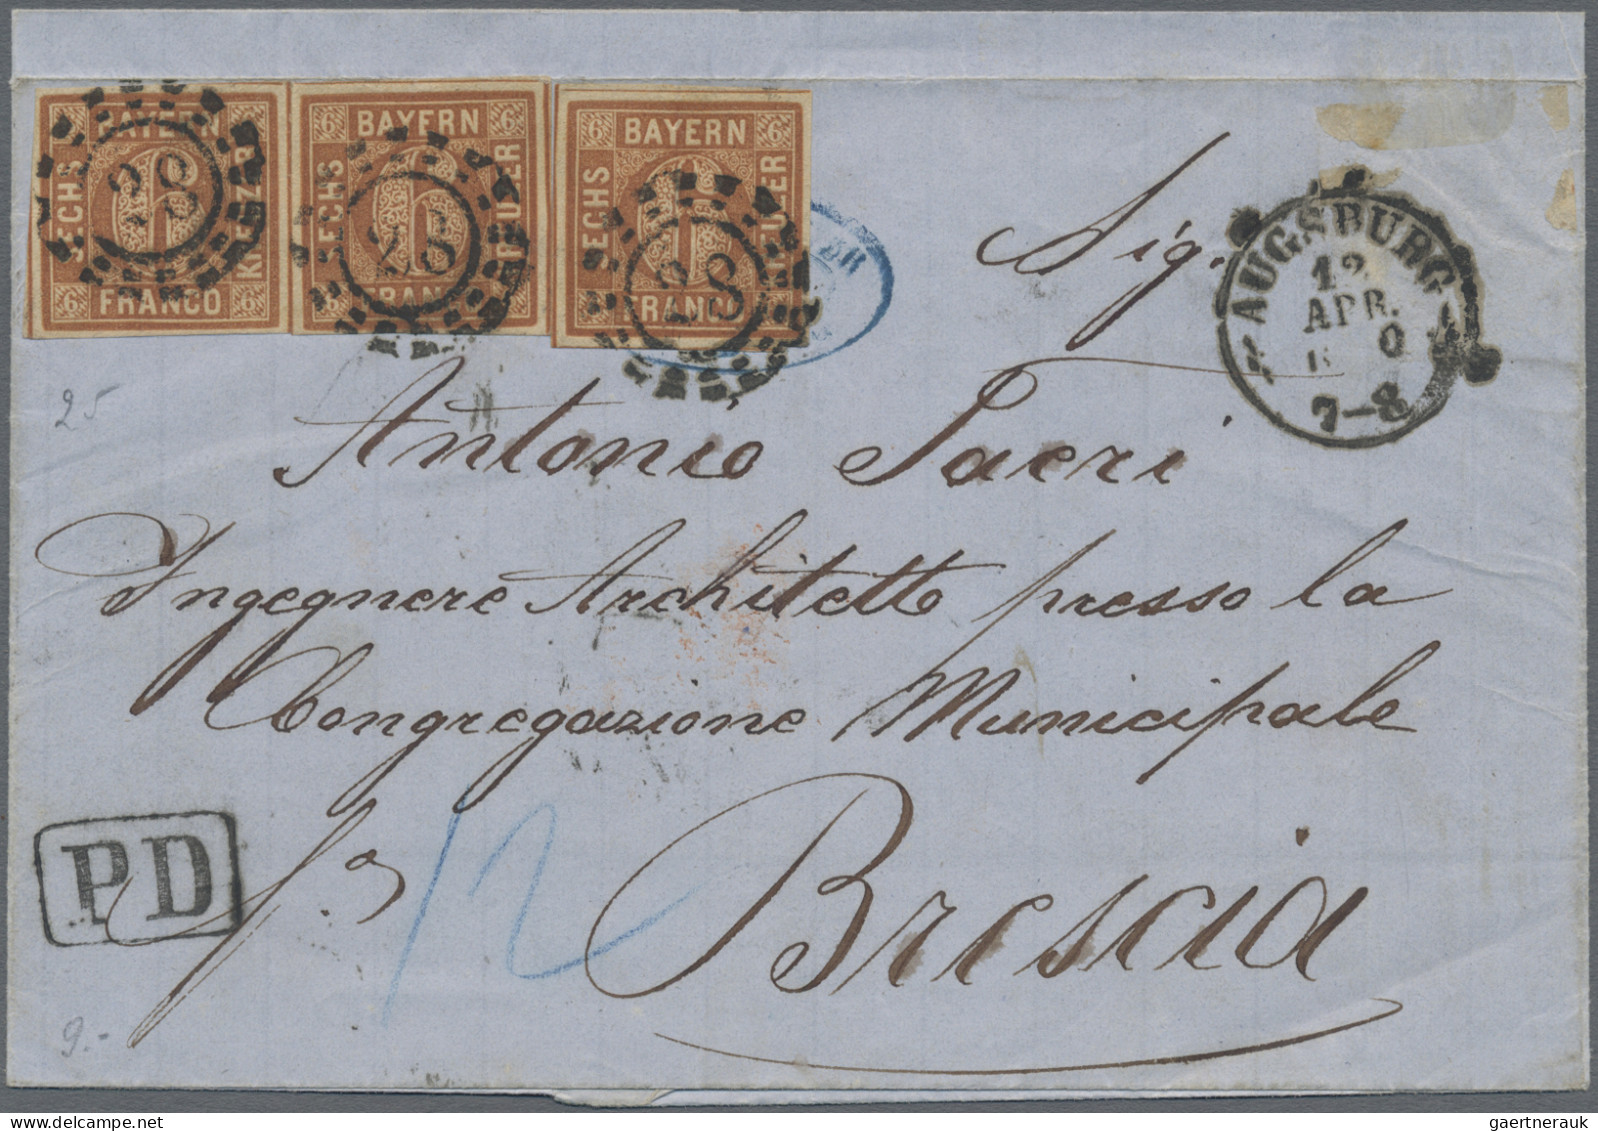 6 BAYERN 6
SECHS
KREUZER
FRANCO
6 6
28
6 BAYERN 6
SECHS
KREUZER
FRANCO
6
28
6 BAYERN 6
SECHS
KREUZER
FRANCO
6
28
AUGSBURG
12
APR.
7-8
Sig.
25
Antonio Sacri
Ingegnere Architetto presso la
Congregazione Municipale
PD
12
Brescia
9.-
gaertnerauk